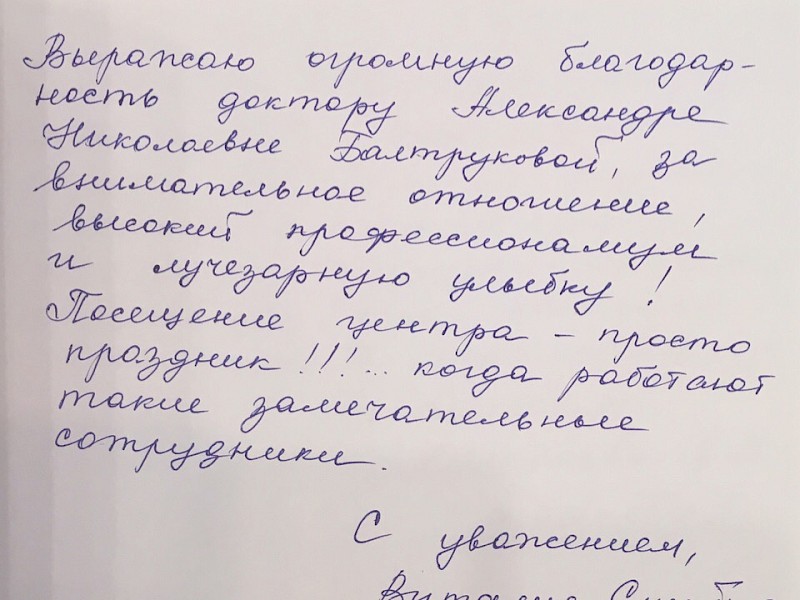 Выражаю огромную благодар-
ность доктору Александре
Николаевне Балтруковой, за
внимательное отношение,
высокий профессионализм
и лучезарную улыбку!
Посещение центра - просто
праздник!!!... когда работают
такие замечательные
сотрудники.
С уважением,